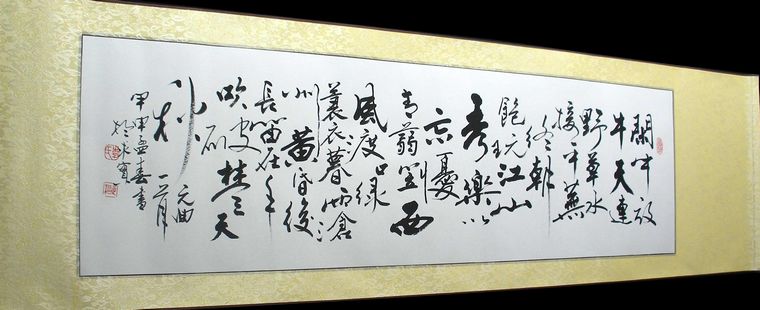 閑中放
牛天連
野草水
接平蕪
終朝
飽玩江山
秀樂以
忘憂
青蒻笠西
風度口綠
蓑衣暮雨滄
州黄昏後
長笛在手
吹破楚天
秋
元曲
一首
甲申孟春書